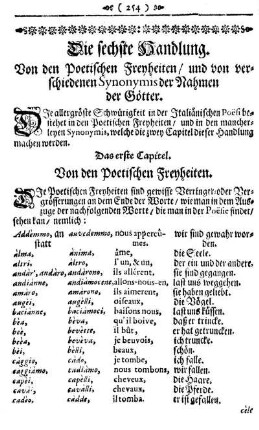 ( 254 )
Die sechste Handlung.
Von den Poetischen Freyheiten/ und von ver-
schiedenen Synonymis der Nahmen
der Götter.
Die allergröste Schwürigkeit in der Italiänischen Poësi be-
stehet in den Poetischen Freyheiten/ und in den mancher-
leyen Synonymis, welche die zwey Capitel dieser Handlung
machen werden.
Das erste Capitel.
Von den Poetischen Freyheiten.
Die Poetischen Freyheiten sind gewisse Verringer- oder Ver-
grösserungen an dem Ende der Worte/ wie man in dem Auß-
zuge der nachfolgenden Worte/ die man in der Poësie findet/
sehen kan/ nemlich:
Addèmmo, an avvedemmo, nous apperceû- wir sind gewahr wor-
statt mes. den.
àlma, ànima, âme, die Seele.
altri, àltro, l'un, & un, der ein und der andere.
andàr', andàro, andàrono, ils allérent, sie sind gegangen.
andiànne, andiamocene, allons-nous-en, last uns weggehen.
amàro, amàrono, ils aimerent, sie haben geliebt.
augèi, augèlli, oiseaux, die Vögel.
baciànne, baciàmoci, baisons nous, last uns küssen.
bèa, bèva, qu'il boive, daß er trincke.
beè, bevètte, il bût, er hat getruncken.
bèo, bèvo, je beuvois, ich trincke.
bèi, bèlli, beaux, schön.
càggio, càdo, je tombe, ich falle.
caggiàmo, cadiàmo, nous tombons, wir fallen.
capèi, capèlli, cheveux, die Haare.
cavài, cavàlli, chevaux, die Pferde.
cadèo, cadde, il tomba, er ist gefallen.
cèle